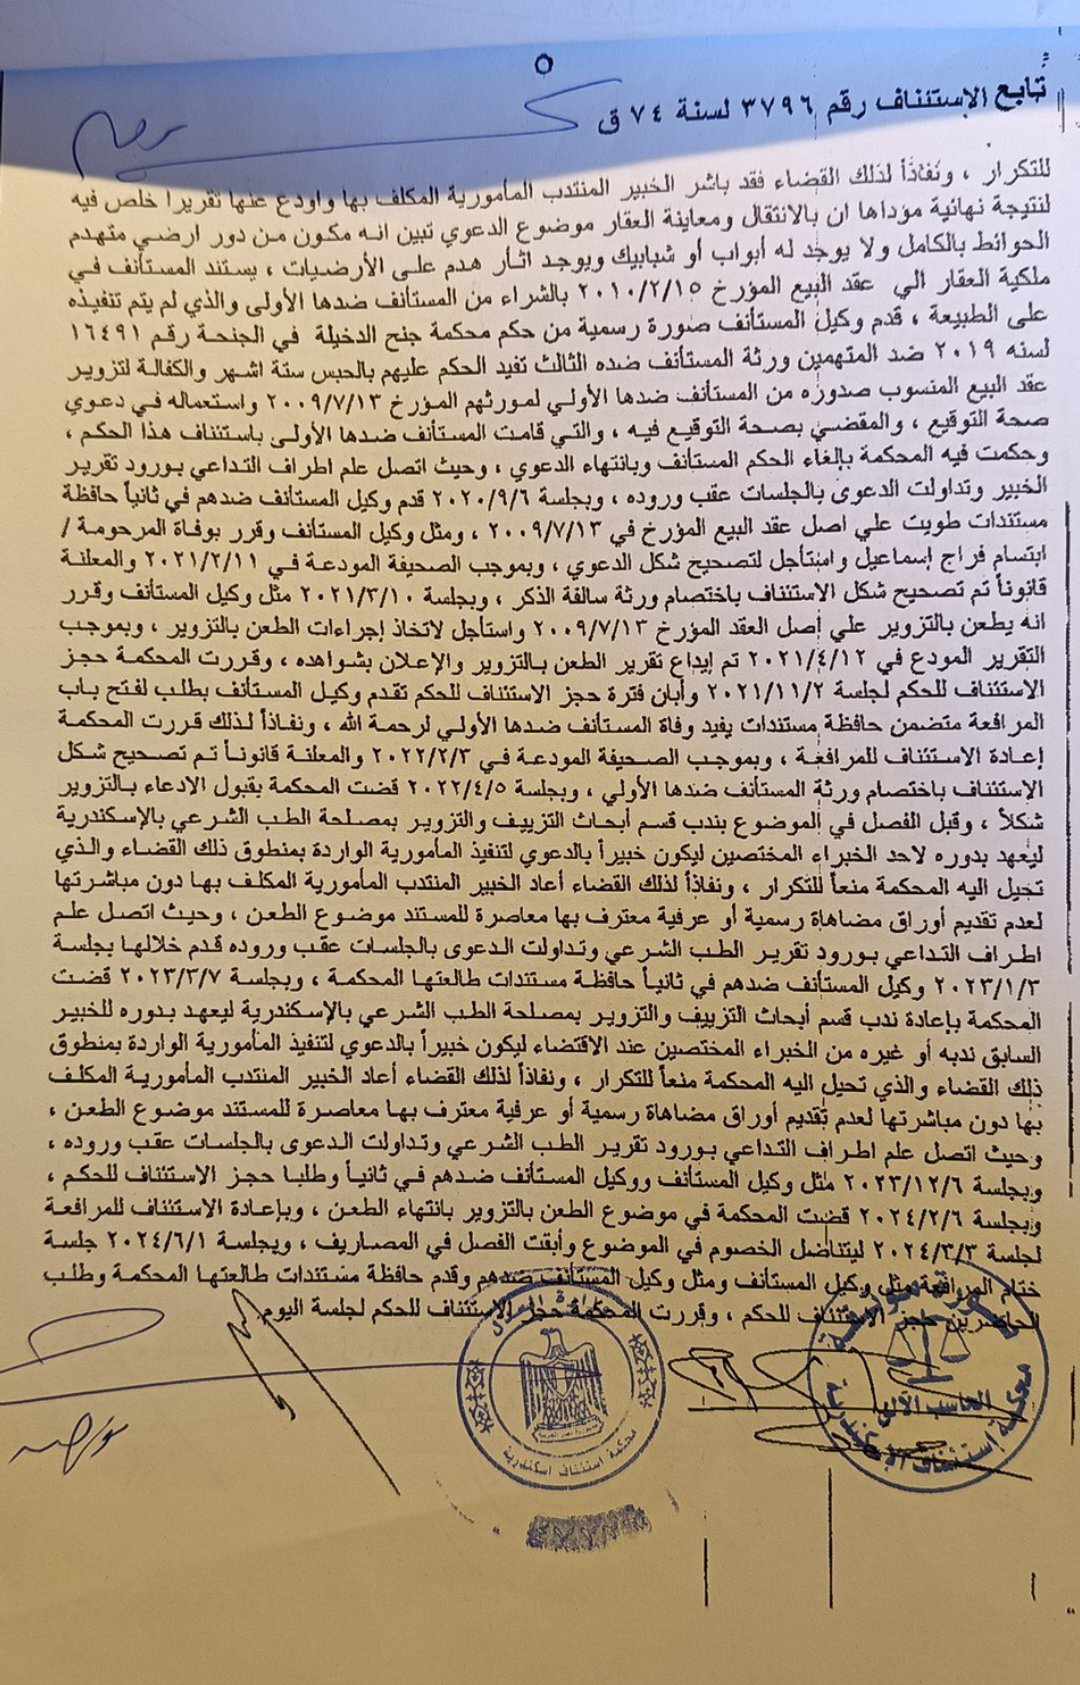 ٥
تابع الإستئناف رقم ٣٧٩٦ لسنة ٧٤ ق
للتكرار ، ونفاذاً لذلك القضاء فقد باشر الخبير المنتدب المأمورية المكلف بها واودع عنها تقريرا خلص فيه
لنتيجة نهائية مؤداها ان بالانتقال ومعاينة العقار موضوع الدعوي تبين انه مكون من دور ارضي متهدم
الحوائط بالكامل ولا يوجد له أبواب أو شبابيك ويوجد اثار هدم على الأرضيات ، يستند المستأنف في
ملكية العقار الي عقد البيع المؤرخ ٢٠١٠/٢/١٥ بالشراء من المستأنف ضدها الأولى والذي لم يتم تنفيذه
على الطبيعة ، قدم وكيل المستأنف صورة رسمية من حكم محكمة جنح الدخيلة في الجنحة رقم ١٦٤٩١
لسنه ٢٠١٩ ضد المتهمين ورثة المستأنف ضده الثالث تفيد الحكم عليهم بالحبس ستة اشهر والكفالة لتزوير
عقد البيع المنسوب صدوره من المستأنف ضدها الأولي لمورثهم المؤرخ ٢٠٠٩/٧/١٣ واستعماله في دعوي
صحة التوقيع ، والمقضي بصحة التوقيع فيه ، والتي قامت المستأنف ضدها الأولى باستئناف هذا الحكم ،
وحكمت فيه المحكمة بإلغاء الحكم المستأنف وبانتهاء الدعوي ، وحيث اتصل علم اطراف التداعي بورود تقرير
الخبير وتداولت الدعوى بالجلسات عقب وروده ، وبجلسة ٢٠٢٠/٩/٦ قدم وكيل المستأنف ضدهم في ثانياً حافظة
مستندات طويت علي اصل عقد البيع المؤرخ في ٢٠٠٩/٧/١٣ ، ومثل وكيل المستأنف وقرر بوفاة المرحومة /
ابتسام فراج إسماعيل واستأجل لتصحيح شكل الدعوي ، وبموجب الصحيفة المودعة في ٢٠٢١/٢/١١ والمعلنة
قانوناً تم تصحيح شكل الاستئناف باختصام ورثة سالفة الذكر ، وبجلسة ٢٠٢١/٣/١٠ مثل وكيل المستأنف وقرر
انه يطعن بالتزوير علي أصل العقد المؤرخ ٢٠٠٩/٧/١٣ واستأجل لاتخاذ إجراءات الطعن بالتزوير ، وبموجب
التقرير المودع في ٢٠٢١/٤/١٢ تم إيداع تقرير الطعن بالتزوير والإعلان بشواهده ، وقررت المحكمة حجز
الاستئناف للحكم لجلسة ٢٠٢١/١١/٢ وأبان فترة حجز الاستئناف للحكم تقدم وكيل المستأنف بطلب لفتح باب
المرافعة متضمن حافظة مستندات يفيد وفاة المستأنف ضدها الأولي لرحمة الله ، ونفاذاً لذلك قررت المحكمة
إعادة الاستئناف للمرافعة ، وبموجب الصحيفة المودعة في ٢٠٢٢/٢/٣ والمعلنة قانوناً تم تصحيح شكل
الإستئناف باختصام ورثة المستأنف ضدها الأولي ، وبجلسة ٢٠٢٢/٤/٥ قضت المحكمة بقبول الادعاء بالتزوير
شكلاً ، وقبل الفصل في الموضوع بندب قسم أبحاث التزييف والتزوير بمصلحة الطب الشرعي بالإسكندرية
ليعهد بدوره لاحد الخبراء المختصين ليكون خبيراً بالدعوي لتنفيذ المأمورية الواردة بمنطوق ذلك القضاء والذي
تحيل اليه المحكمة منعاً للتكرار ، ونفاذاً لذلك القضاء أعاد الخبير المنتدب المأمورية المكلف بها دون مباشرتها
لعدم تقديم أوراق مضاهاة رسمية أو عرفية معترف بها معاصرة للمستند موضوع الطعن ، وحيث اتصل علم
اطراف التداعي بورود تقرير الطب الشرعي وتداولت الدعوى بالجلسات عقب وروده قدم خلالها بجلسة
٢٠٢٣/١/٣ وكيل المستأنف ضدهم في ثانياً حافظة مستندات طالعتها المحكمة ، وبجلسة ٢٠٢٣/٣/٧ قضت
المحكمة بإعادة ندب قسم أبحاث التزييف والتزوير بمصلحة الطب الشرعي بالإسكندرية ليعهد بدوره للخبير
السابق ندبه أو غيره من الخبراء المختصين عند الاقتضاء ليكون خبيراً بالدعوي لتنفيذ المأمورية الواردة بمنطوق
ذلك القضاء والذي تحيل اليه المحكمة منعاً للتكرار ، ونفاذاً لذلك القضاء أعاد الخبير المنتدب المأمورية المكلف
بها دون مباشرتها لعدم تقديم أوراق مضاهاة رسمية أو عرفية معترف بها معاصرة للمستند موضوع الطعن ،
وحيث اتصل علم اطراف التداعي بورود تقرير الطب الشرعي وتداولت الدعوى بالجلسات عقب وروده ،
وبجلسة ٢٠٢٣/١٢/٦ مثل وكيل المستأنف ووكيل المستأنف ضدهم في ثانياً وطلبا حجز الاستئناف للحكم ،
وبجلسة ٢٠٢٤/٢/٦ قضت المحكمة في موضوع الطعن بالتزوير بانتهاء الطعن ، وبإعادة الاستئناف للمرافعة
لجلسة ٢٠٢٤/٣/٣ ليتناضل الخصوم في الموضوع وأبقت الفصل في المصاريف ، وبجلسة ٢٠٢٤/٦/١ جلسة
ختام المرافعة مثل وكيل المستأنف ومثل وكيل المستأنف ضدهم وقدم حافظة مستندات طالعتها المحكمة وطلب
الحاضرين حجز الاستئناف للحكم ، وقررت المحكمة حجز الاستئناف للحكم لجلسة اليوم
محكمة استئناف اسكندرية
الحاسب الآلي
محكمة إستئناف الإسكندرية